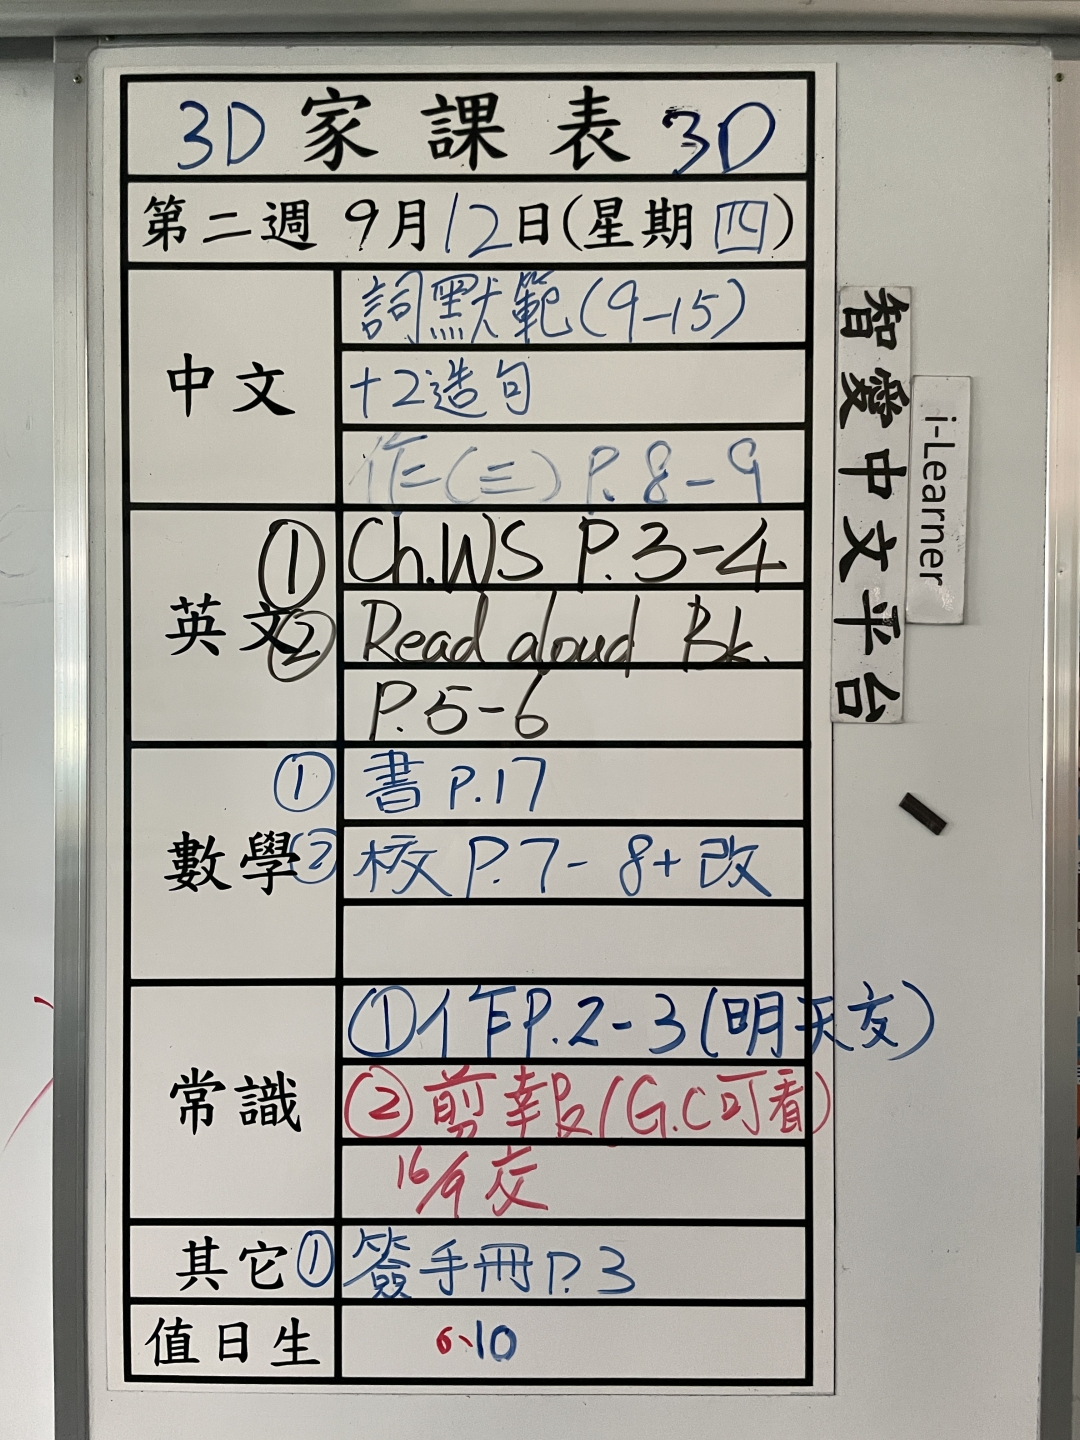 3D 家課表 3D
第二週 9月12日(星期四)
中文
詞默範(9-15)
+2造句
作一(三) P.8-9
英文
① Ch.WS P.3-4
② Read aloud Bk.
P.5-6
數學
① 書 P.17
② 校 P.7-8+改
常識
①作P.2-3(明天交)
②剪報(G.C可看)
16/9 交
其它
① 簽手冊P.3
值日生
6、10
智愛中文平台
i-Learner